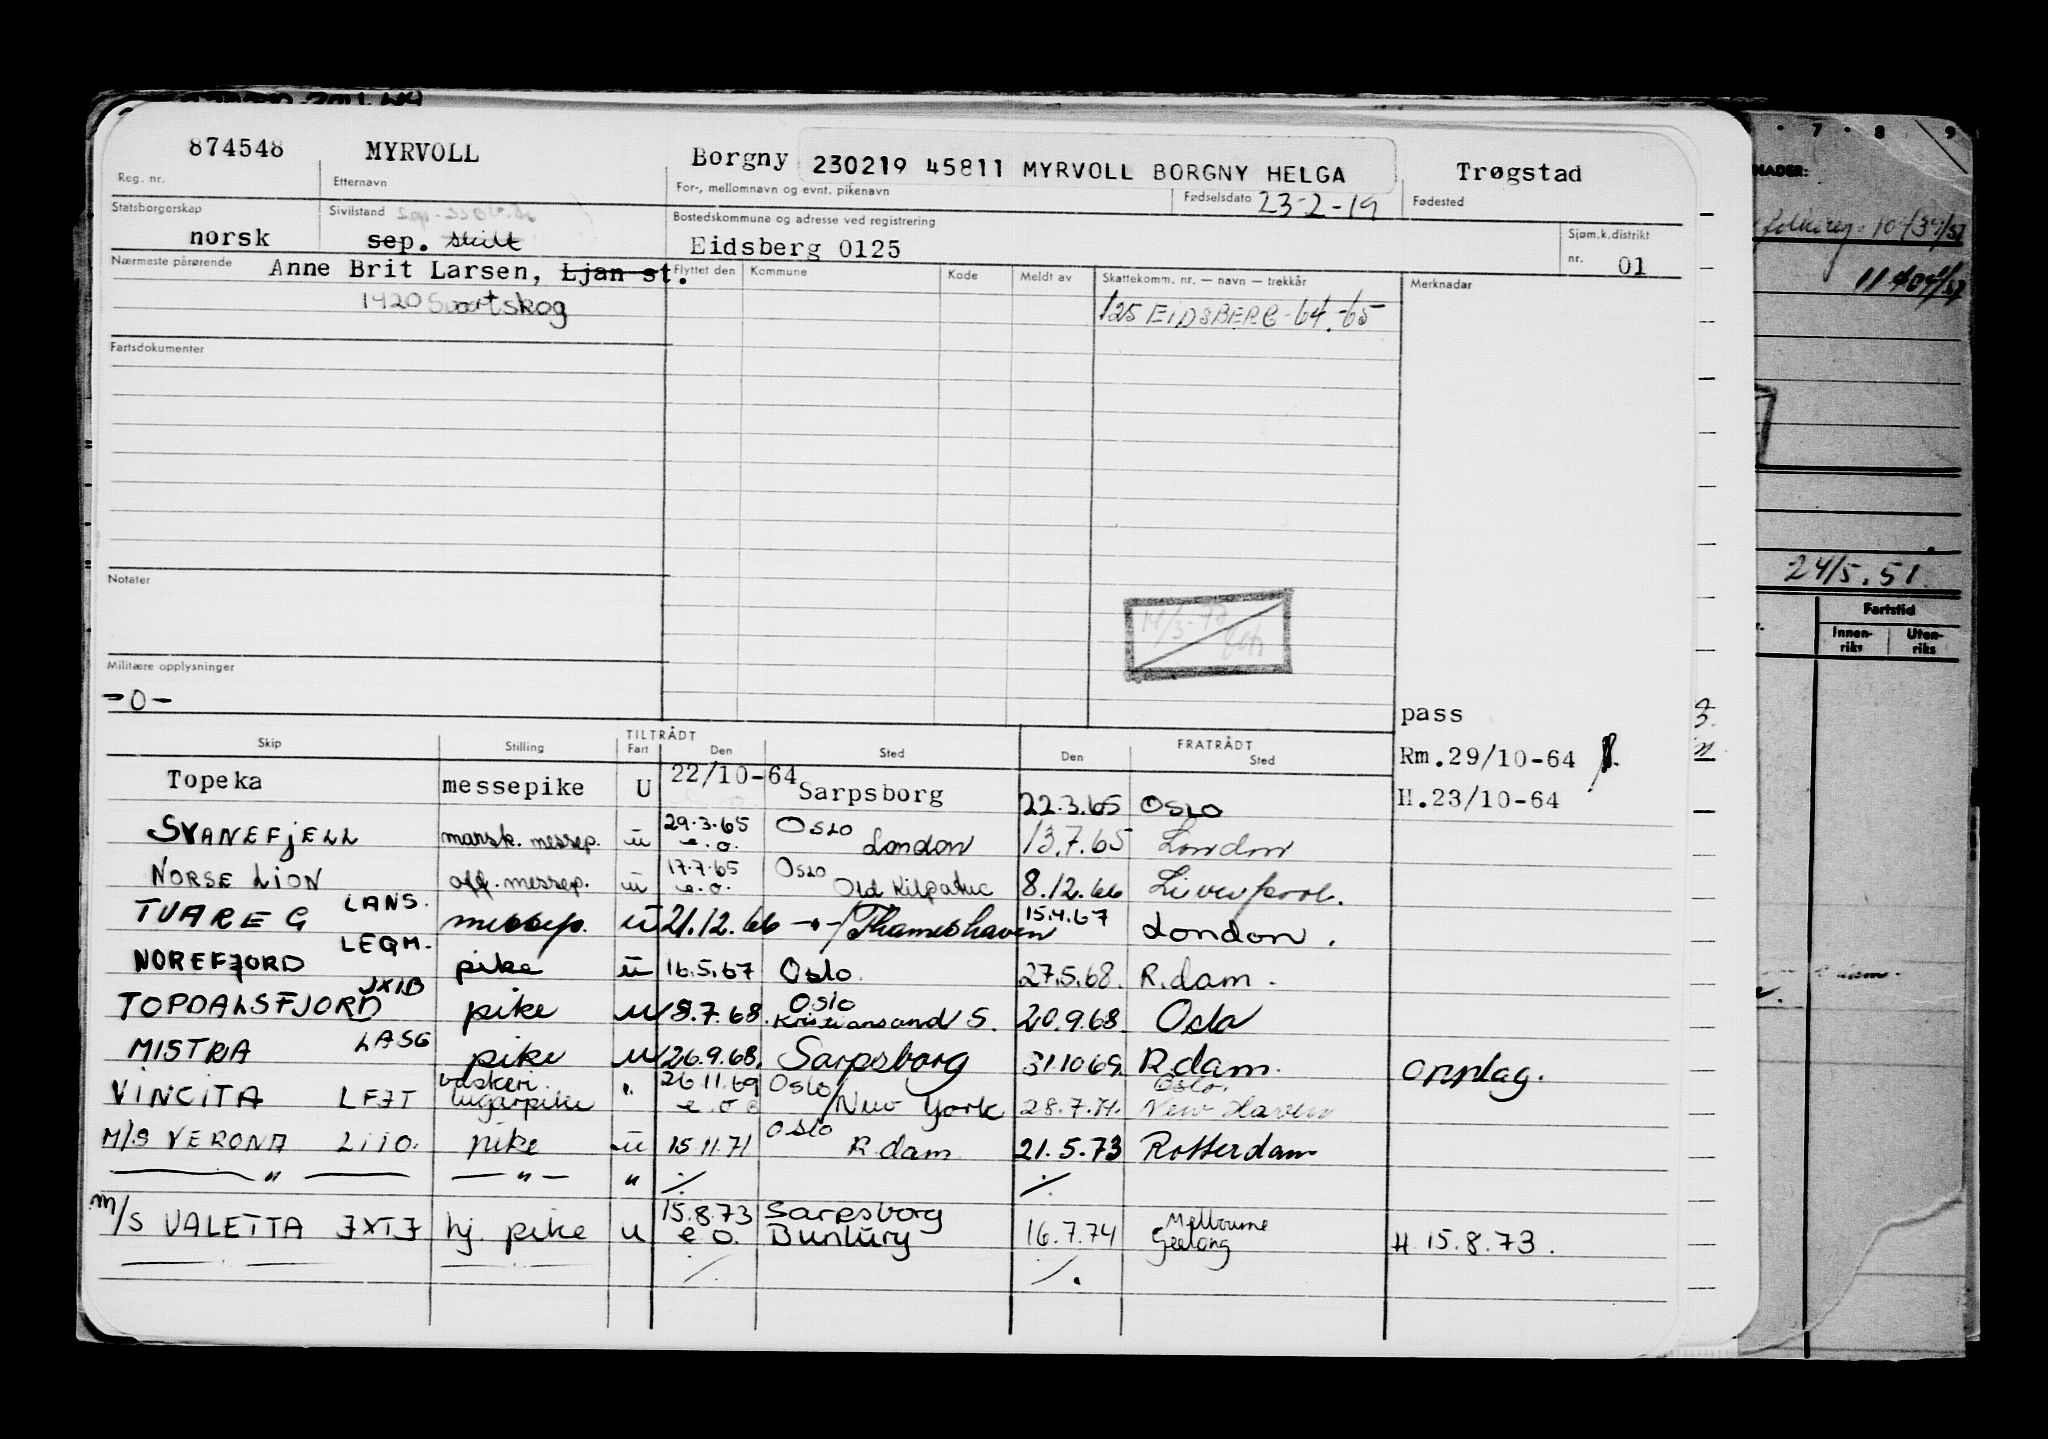 874548 MYRVOLL Borgny 230219 45811 MYRVOLL BORGNY HELGA Trøgstad
Reg. nr. Etternavn For-, mellomnavn og evnt. pikenavn Fødselsdato 23-2-19 Fødested
Statsborgerskap Sivilstand Bostedskommune og adresse ved registrering Sjøm.k.distrikt
norsk sep. skilt Eidsberg 0125 nr. 01
Nærmeste pårørende Anne Brit Larsen, Ljan st. Flyttet den Kommune Kode Meldt av Skattekomm. nr. — navn — trekkår Merknader
1420 Svartskog 125 EIDSBERG-64.-65
Fartsdokumenter
Notater
Militære opplysninger
-0-
pass
Skip Stilling TILTRÅDT Fart Den Sted FRATRÅDT Den Sted Rm.29/10-64
Topeka messepike U 22/10-64 Sarpsborg 22.3.65 OSLO H.23/10-64
SVANEFJELL mansk. messep. u 29.3.65 e.o. OSLO London 13.7.65 London
NORSE LION off. messep. u 17.7.65 e.o. OSLO Old Kilpatric 8.12.66 Liverpool.
TUAREG LANS. messep. u 21.12.66 -"-/Thameshaven 15.4.67 London.
NOREFJORD LEQM. pike u 16.5.67 Oslo. 27.5.68. R.dam.
TOPDALSFJORD JXIB pike u 8.7.68. Oslo Kristiansand S. 20.9.68. Oslo
MISTRA LASG pike u 26.9.68. Sarpsborg 31.10 69. R.dam. opplag.
VINCITA LFJT vaskeri lugarpike " 26.11.69 e.o. Oslo/New York 28.7.71. Oslo. New Haven
M/S VERONA LIIO. pike u 15.11.71 Oslo R dam 21.5.73 Rotterdam
— " — — " — " ·/. ·/.
M/S VALETTA JXTJ hj. pike u 15.8.73 e o. Sarpsborg Bunbury 16.7.74 Melbourne Geelong H. 15.8.73.
·/. ·/.
7 · 8 9
24/5.51.
Fartstid
Innen-riks Uten-riks